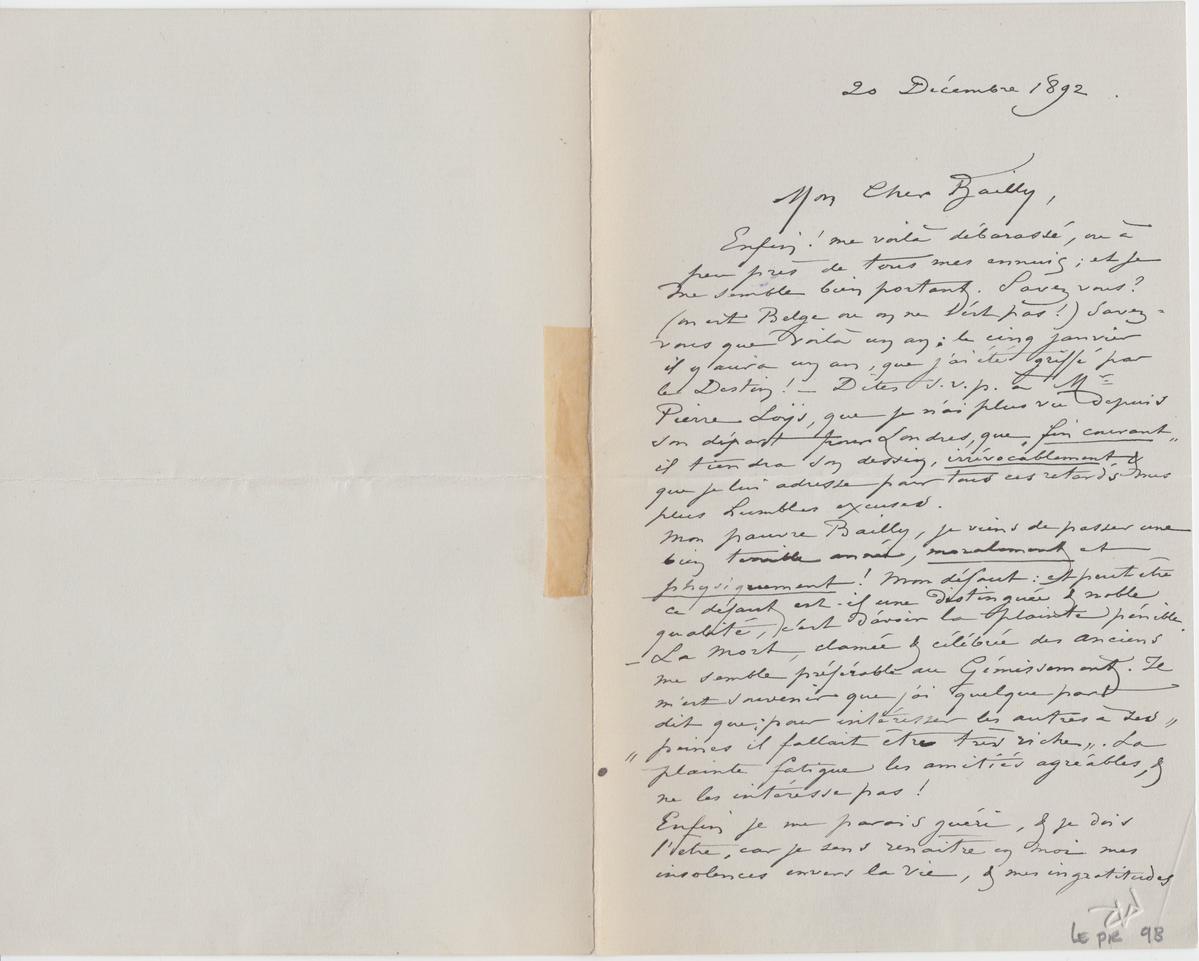 20 Décembre 1892.
Mon Cher Bailly,
Enfin! me voilà débarassé, ou à
peu près de tous mes ennuis; et je
me semble bien portant. Savez vous?
(on est Belge ou on ne l'est pas!) Savez-
vous que voilà un an; le cinq janvier
il y aura un an, que j'ai été griffé par
le Destin! – Dites s.v.p. à Mr
Pierre Loÿs, que je n'ai plus vu depuis
son départ pour Londres, que "fin courant"
il tiendra son dessin, irrévocablement &
que je lui adresse pour tous ces retards mes
plus humbles excuses.
Mon pauvre Bailly, je viens de passer une
bien terrible année, moralement et
physiquement! Mon défaut: et peut être
ce défaut est-il une distinguée & noble
qualité, c'est d'avoir la plainte pénible.
– La Mort, clamée & célébrée des anciens
me semble préférable au Gémissement. Il
m'est souvenir que j'ai quelque part
dit que: pour intéresser les autres à ses "
" peines il fallait être très riche". La
plainte fatigue les amitiés agréables, &
ne les intéresse pas!
Enfin je me parais guéri, & je dois
l'être, car je sens renaître en moi mes
insolences envers la vie, & mes ingratitudes
LE PIR 98